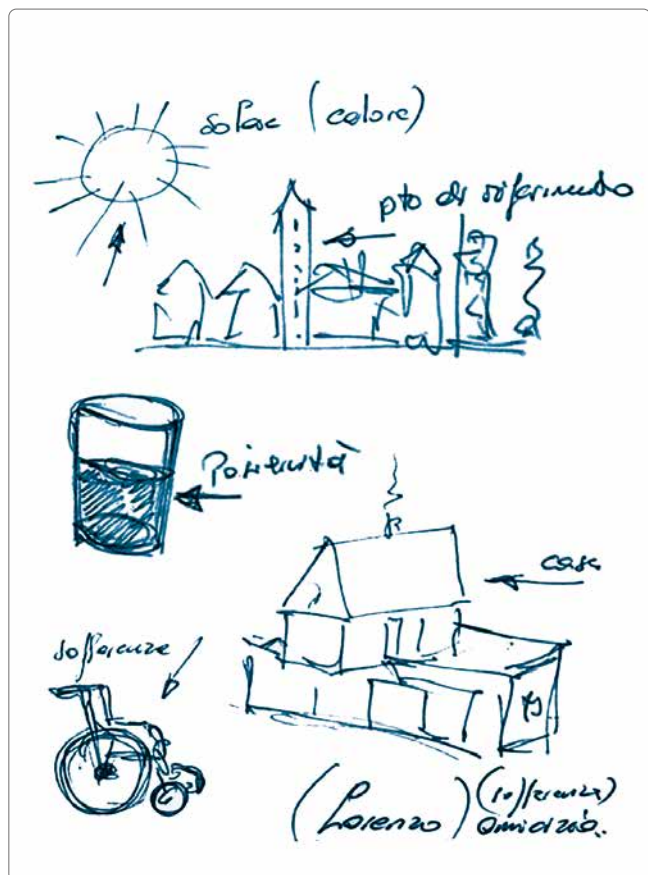 solare (calore)
pto di riferimento
Positività
casa
sofferenza
(Lorenzo) (sofferenza)
amicizia.